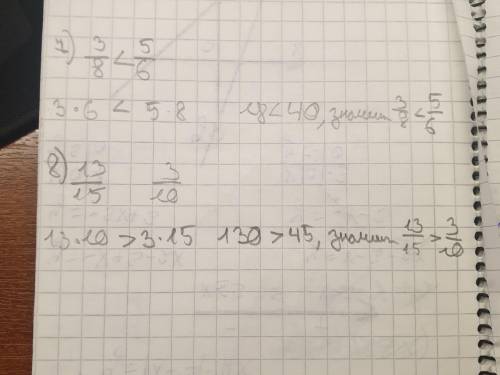 7) 3/8 < 5/6
3·6 < 5·8 18<40, значит 3/8 < 5/6
8) 13/15 3/10
13·10 > 3·15 130 > 45, значит 13/15 > 3/10